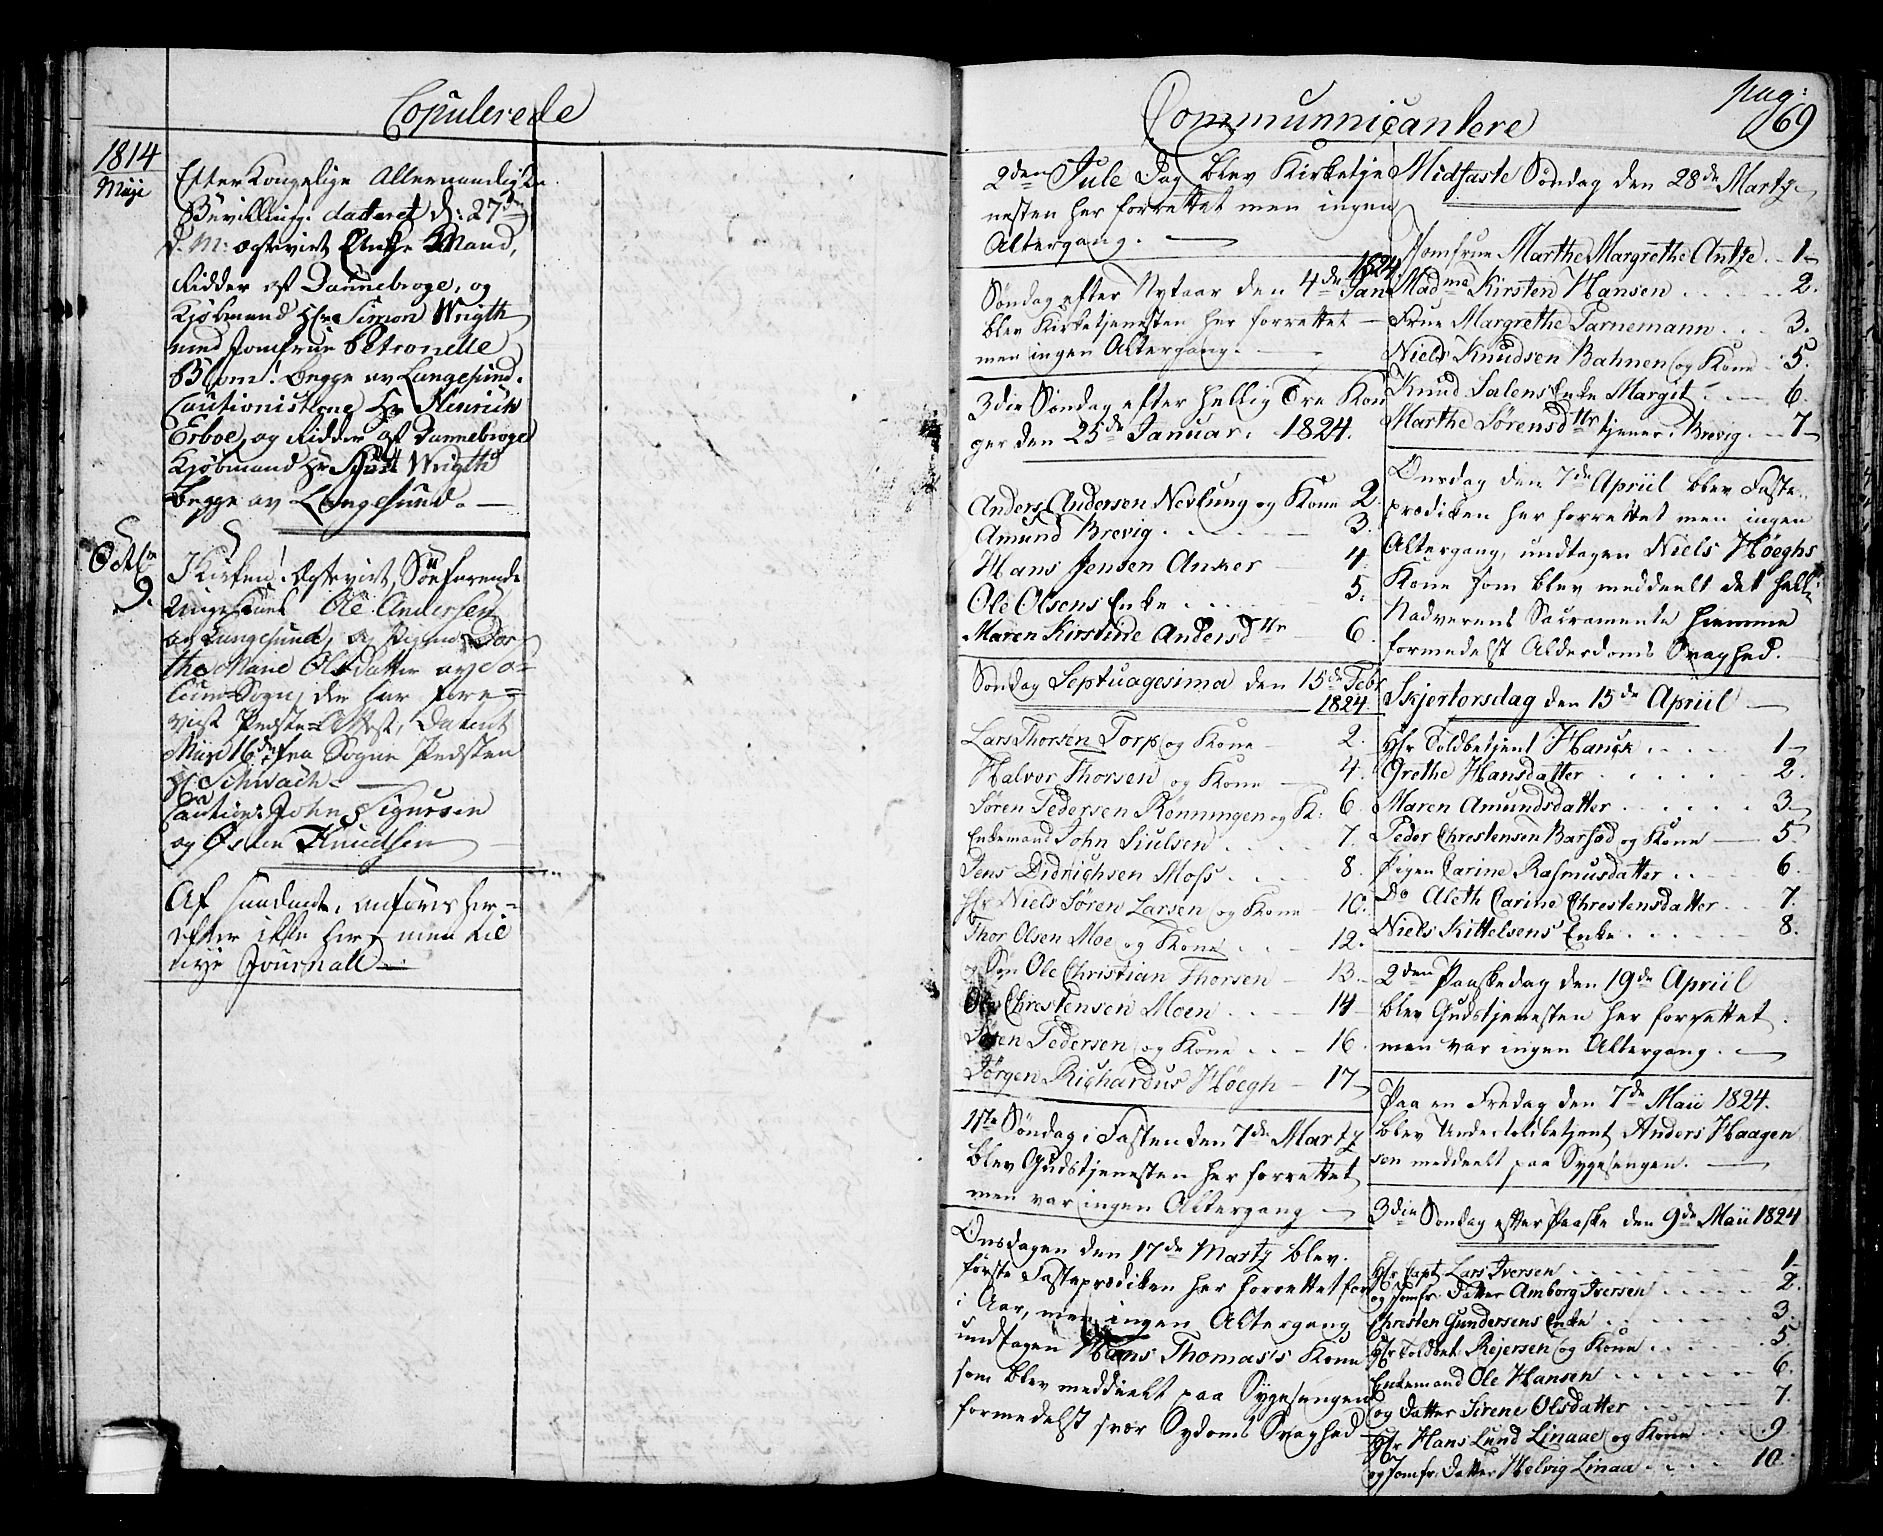 Copulerede
1814
Maji
Efter Kongelige Allernaadigste
Bevilling. dateret d: 27de
d. M: Egteviet Enke Mand,
Ridder af Dannebroge, og
Kjøbmand Hr Simon Wrigth
med Jomfrue Petronelle
Blom! begge av Langesund.
Cautionisterne Hr Henrich
Erboe, og Ridder af Dannebroge
Kjøbmand Hr Wrigth
begge av Langesund. —
Octbr
9.
I Kirken! Egteviet, Søefarende
Ungekarl Ole Andersen
av Langesund, og Pigen Dor-
the Marie Olsdatter av
Sogn, der har fore=
vist Præste=Attest, Datert
16de fra Sogne Præsten
Hr Schwach. —
Caution: John Sigursen
og Østen Knudsen
Af saadant, anføres her=
efter ikke her, men til
nye Journall —
pag:
69
Communnicantere
2den Jule Dag blev Kirketje
nesten her forrettet men ingen
Altergang. —
1824.
Søndag efter Nytaar den 4de Jan
blev Kirketjenesten her forrettet —
men ingen Altergang. —
3die Søndag efter Hellig Tre Kon
ger den 25de Januar. 1824.
Anders Andersen Nevlung og Kone 2.
Amund Brevig . . . . 3.
Hans Jensen Anker — 4.
Ole Olsens Enke . . . . 5.
Maren Kirstine Andersdttr — 6.
Søndag Septuagesima den 15de Febr
1824
Lars Thorsen Torp og Kone — 2.
Halvor Thorsen og Kone — 4.
Søren Pedersen Rønningen og K: 6.
Enkemand John Siulsen . . . . 7.
Jens Didrichsen Moss . . . . 8.
Hr Niels Søren Larsen og Kone — 10.
Thor Olsen Moe og Kone . . . 12.
Søn Ole Christian Thorsen — 13.
Ole Chrestensen Moen . . . . 14
Søren Pedersen og Kone . . — 16.
Jørgen Richardus Høegh — 17
1ste Søndag i Fasten den 7de Martz
blev Gudstjenesten her forrettet
men var ingen Altergang —
Onsdagen den 17de Martz blev
første Fasteprædiken her forrettet for
i Aar, men ingen Altergang
undtagen Hans Thomas's Kone
som blev meddeelt paa Sygesengen
formedelst svær Sygdoms Svaghed —
Midfaste Søndag den 28de Martz
Jomfrue Marthe Margrethe Antze . — 1
Madme Kirsten Hansen . . . . . . 2.
Frue Margrethe Parnemann . . . 3.
Niels Knudsen Bahnen og Kone 5.
Knud Salens Enke Margit . . — 6.
Marthe Sørensdttr tjener i Brevig . — 7
Onsdag den 7de Apriil blev Faste=
prædiken her forrettet men ingen
Altergang, undtagen Niels Høeghs
Kone som blev meddeelt det hell:
Nadverens Sacramente hiemme
formedelst Alderdoms Svaghed.
Skjertorsdag den 15de Apriil —
Hr Toldbetjent Hauck . . . . 1
Grethe Hansdatter . . . . . . 2.
Maren Amundsdatter . . . . . . 3
Peder Chrestensen Barsod og Kone — 5
Pigen Carine Rasmusdatter . . . . 6.
Do Aleth Carine Chrestensdatter . . 7.
Niels Kittelsens Enke . . . . . . 8.
2den Paaskedag den 19de Apriil
blev Gudstjenesten her forrettet .
men var ingen Altergang . —
Paa en Fredag den 7de Maii 1824.
blev Undertoldbetjent Anders Haagen
sen meddeelt paa Sygesengen. —
3die Søndag efter Paaske den 9de Maii 1824
Hr Capt Lars Iversen . . . . . . 1
og Jomfr: Datter Amborg Iversen . . . . 2.
Christen Gundersens Enke . . . . . . 3.
Hr Toldbet: Reiersen og Kone . . . . 5
Enkemand Ole Hansen . . . . . . 6.
og Datter Sirene Olsdatter . . . . . 7.
Hr Hans Lund Linaae og Kone . . . 9
og Jomfr: Datter Helvig Linaa . . . . 10.